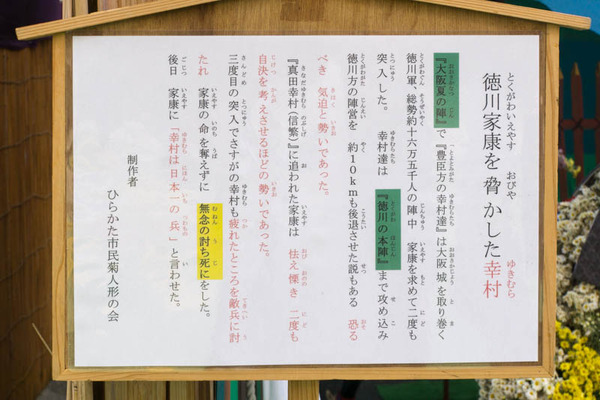 徳川家康を脅かした幸村
『大阪夏の陣』で『豊臣方の幸村達』は大阪城を取り巻く
徳川軍、総勢約十六万五千人の陣中 家康を求めて二度も
突入した。 幸村達は 『徳川の本陣』まで攻め込み
徳川方の陣営を 約10kmも後退させた説もある 恐る
べき 気迫と勢いであった。
『真田幸村(信繁)』に追われた家康は 怯え慄き 二度も
自決を考えさせるほどの勢いであった。
三度目の突入でさすがの幸村も疲れたところを敵兵に討
たれ 家康の命を奪えずに 無念の討ち死にをした。
後日 家康に「幸村は日本一の兵」と言わせた。
制作者
ひらかた市民菊人形の会